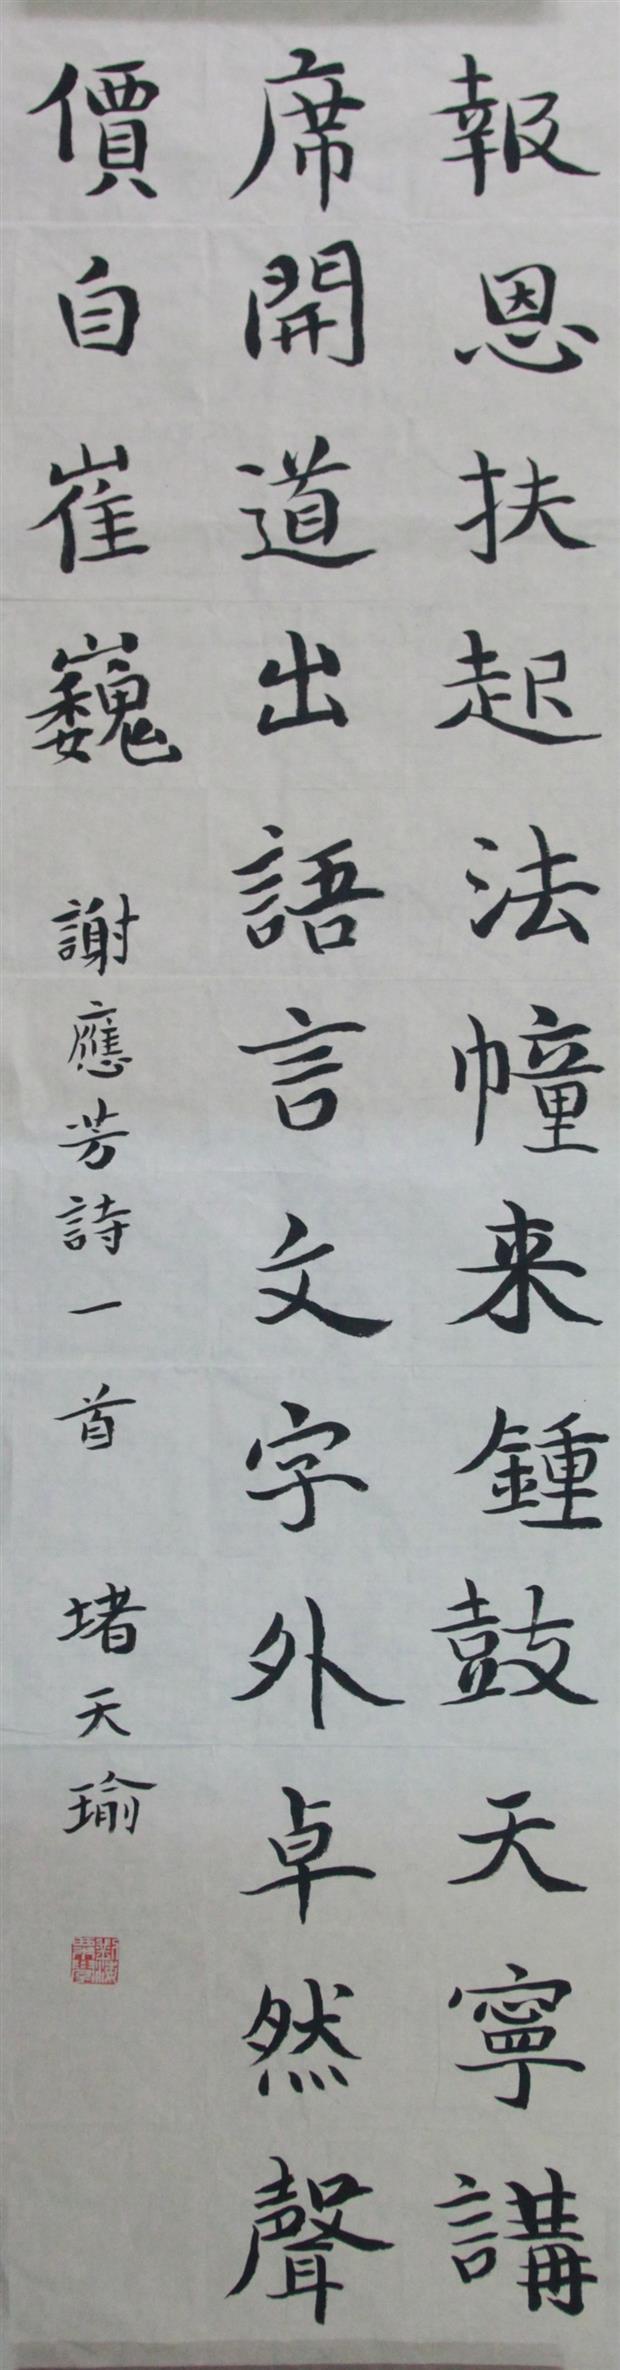 報恩扶起法幢来鍾鼓天寧講
席開道出語言文字外卓然聲
價自崔巍
謝應芳詩一首
堵天瑜